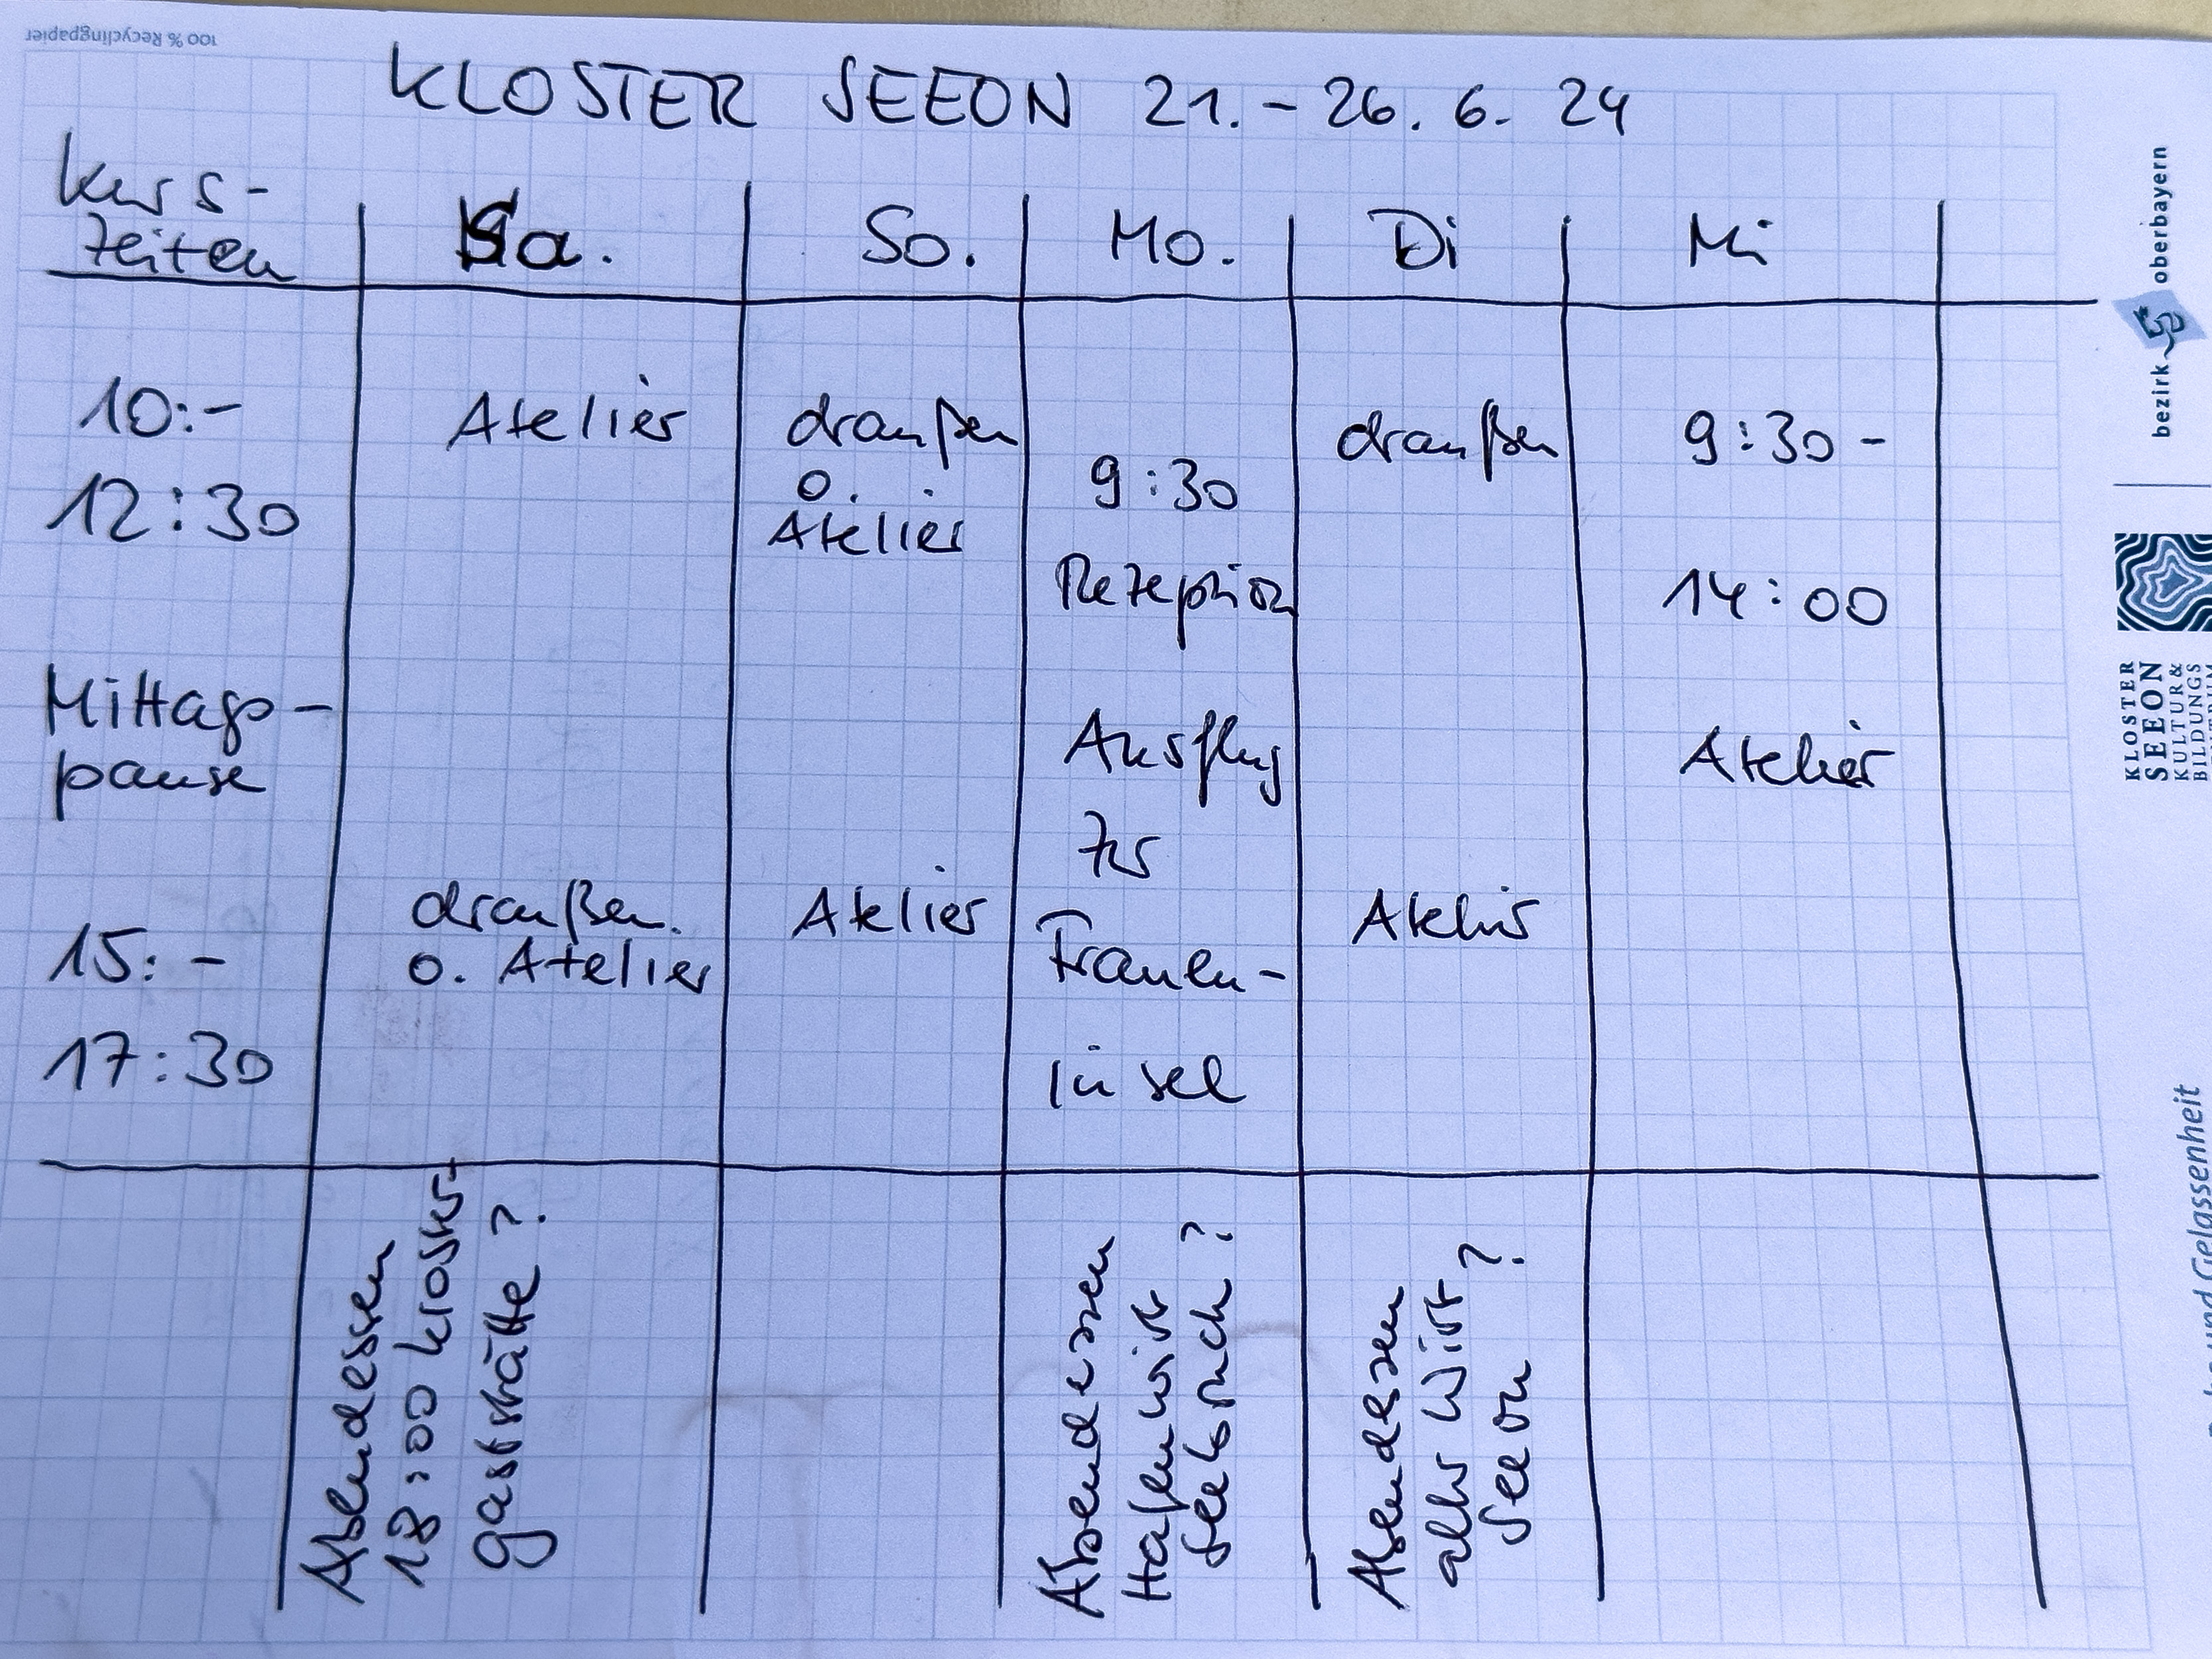 100 % Recyclingpapier
KLOSTER SEEON 21. - 26. 6. 24
Kurs-
zeiten
Sa.
So.
Mo.
Di
Mi
10:-
12:30
Atelier
draußen
o.
Atelier
9:30
Rezeption
Ausflug
zur
Frauen-
insel
draußen
9:30 -
14:00
Atelier
Mittags-
pause
15: -
17:30
draußen
o. Atelier
Atelier
Atelier
Abendessen
18:00 Kloster-
gaststätte ?
Abendessen
Hafenwirt
Seebruck ?
Abendessen
alter Wirt ?
Seeon
bezirk oberbayern
KLOSTER
SEEON
KULTUR&
BILDUNGS
und Gelassenheit